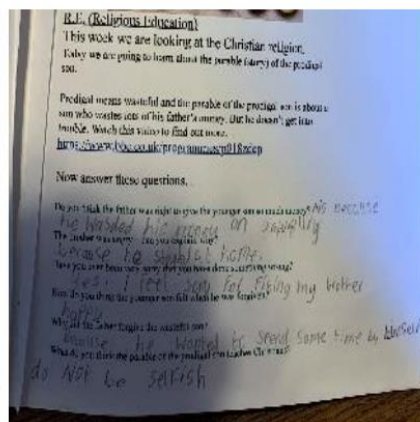 R.E. (Religious Education)
This week we are looking at the Christian religion.
Today we are going to learn about the parable (story) of the prodigal
son.
Prodigal means wasteful and the parable of the prodigal son is about a
son who wastes lots of his father's money. But he doesn't get into
trouble. Watch this video to find out more.
Now answer these questions.
Do you think the father was right to give the younger son so much money? No because
he wasted his money on
The brother was angry. Can you explain why?
because he home.
Have you ever been very sorry that you have done something wrong?
Yes. I feel sorry for my brother
How do you think the younger son felt when he was forgiven?
happy
Why did the father forgive the wasteful son?
because he wanted to spend some time by
What do you think the parable of the prodigal son teaches Christians?
do NOT be selfish